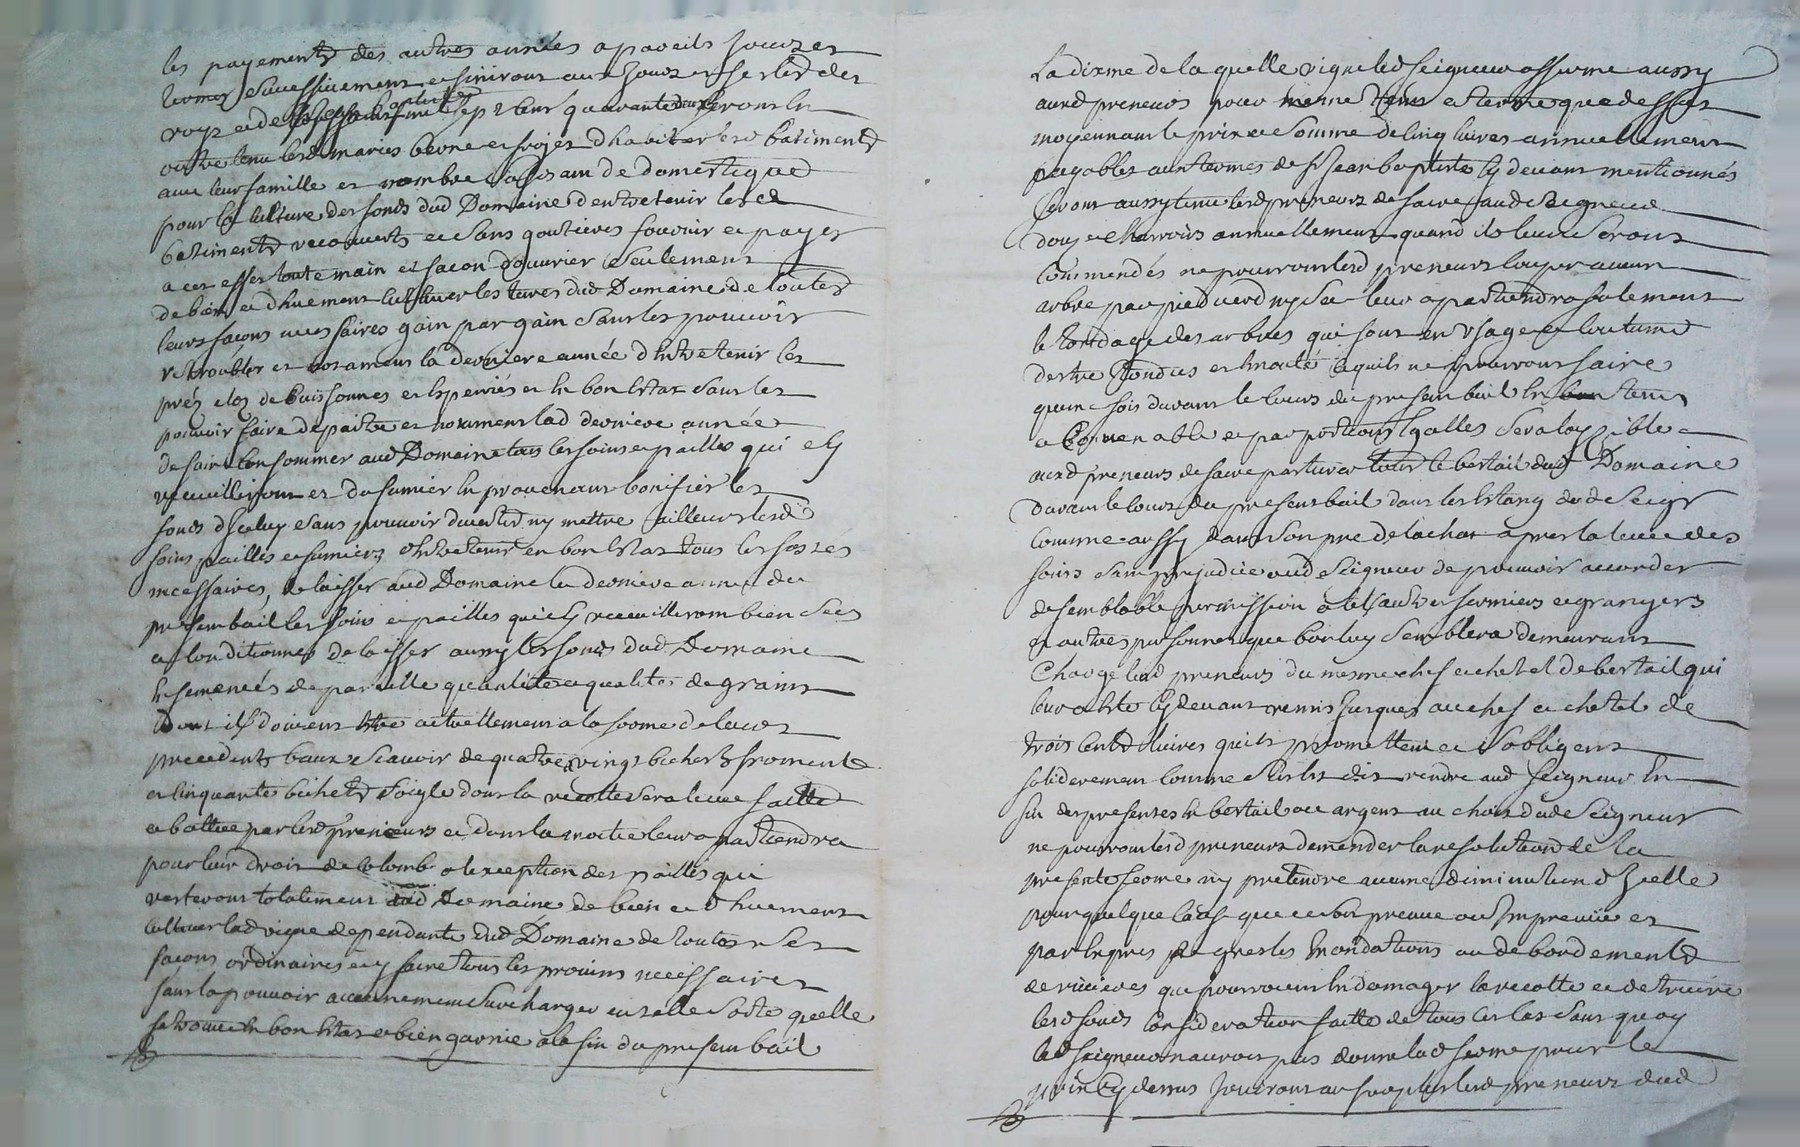 les payements des autres années a pareils jours et
termes successivement et finiront aux jours et festes des
roys et de sept cent quarante deux seront en
outre tenu lesd mariés et sujet d'habiter lesd batiments
avec leur famille et nombre sufisant de domestique
pour la culture des fonds dud Domaine d'entretenir lesd
batiments recouverts et sans goutieres fournir et payer
a cet effet toute main et facon d'ouvrier seulement
de bien et dhuement cultiver les terres dud Domaine de toutes
leurs facons necessaires gain par gain sans les pouvoir
et notament la derniere année d'entretenir les
prés clos de buissonnes et en bon estat sans les
pouvoir faire depaitre et notament lad derniere année
de faire consommer aud Domaine tous les foins et pailles qui sy
recueilliront et du fumier en provenant bonifier les
fonds d'iceluy sans pouvoir divertir ny mettre ailleurs lesd
foins pailles et fumiers d'entretenir en bon estat tous les fossés
necessaires, de laisser aud Domaine la derniere année du
present bail les foins et pailles qui sy recueilliront bien secs
et conditionnés de laisser aussy les fonds dud Domaine
ensemencés de pareille quantité et qualités de grains
dont ils doivent estre actuellement a la forme de leurs
precedents baux scavoir de quatre vingt bichets froment
et cinquante bichets soigle dont la recolte sera levée faitte
et battue par lesd preneurs et dont la moitie leur apartiendra
pour leur droit de colomb a l'exception des pailles qui
resteront totalement aud Domaine de bien et dhuement
cultiver lad vigne dependante dud Domaine de toutes ses
facons ordinaires et y faire tous les provins necessaires
sans la pouvoir aucunement surcharger en telle sorte quelle
se trouve en bon estat et bien garnie a la fin du present bail
La dixme de la quelle vigne led seigneur afferme aussy
auxd preneurs pour meme tems et terme que dessus
moyennant le prix et somme de cinq livres annuellement
payables aux termes de st Jean baptiste cy devant mentionnés
seront aussy tenu lesd preneurs de faire aud seigneur
douze charrois annuellement quand ils leurs seront
commendés ne pourront lesd preneurs couper aucun
arbre par pied verd ny sec leur apartiendra seulement
le tondage des arbres qui sont en usage et coutume
destre tondus et ce quils ne pourront faire
qu'une fois durant le cours du present bail en tems
convenable et par portions egalles sera loysible
auxd preneurs de faire paturer tout le bertail dud Domaine
durant le cours du present bail dans les estang dud seigr
comme aussy dans son pré de lachat après la levée des
foins sans prejudice aud seigneur de pouvoir accorder
de semblable permission a tels autres fermiers et grangers
et autres personnes que bon luy semblera demeurant
chargé lesd preneurs du mesme chef et chetel de bertail qui
leur a esté cy devant remis jusques au chef et chetel de
trois cents livres quils promettent et s'obligent
soliderement comme dit rendre aud seigneur en
fin des presentes en bertail ou argent au choix dud seigneur
ne pourront lesd preneurs demender la resolution de la
presente ferme ny pretendre aucune diminution d'icelle
pour quelque cas que ce soit preveue ou Impreveüe et
par exprés pour les Inondations ou debordements
de rivieres qui pourroient endomager la recolte et detruire
lesd fonds consideration faitte de tous ces cas sans quoy
led seigneur n'auroit pas donné lad ferme pour le
prix cy dessus jouiront au surplus lesd preneurs dud